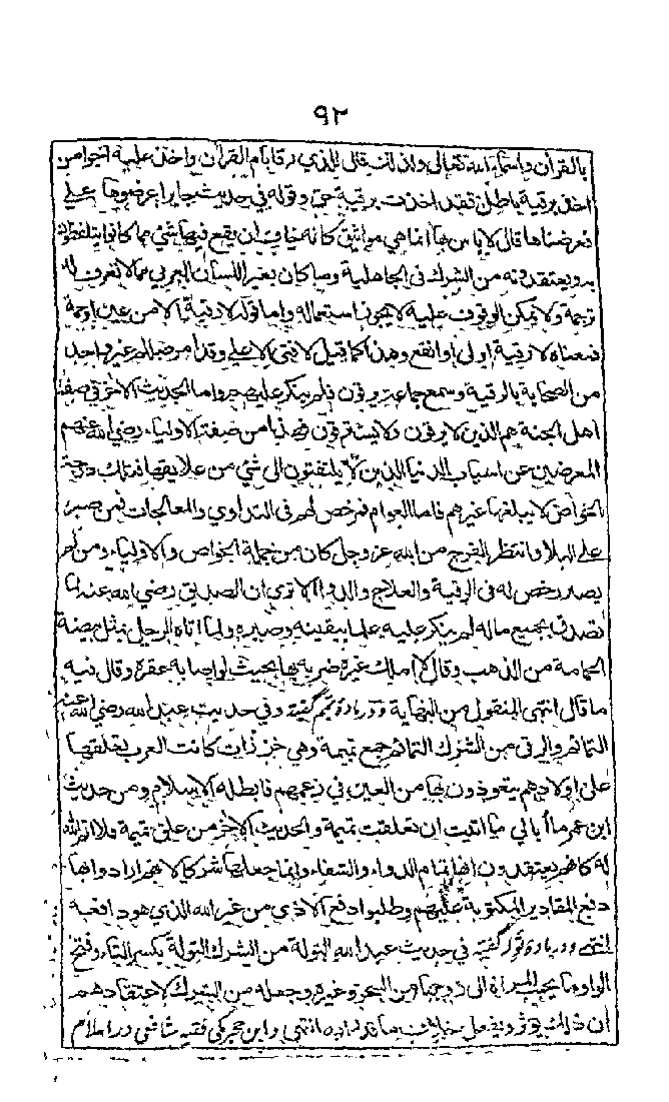 ٩٢
بالقرأن وباسماء الله تعالى وان لك قال للذي رقا بام القرأن واخذ عليه اجرا من
اخذ برقية باطل فقد اخذت برقية حق وقوله في حديث جابر اعرضوها علي
فعرضناها قال لا باس بها انما هي مواثيق كانه خاف ان يقع فيها شئ مما كانوا يتلفظون
به ويعتقدونه من الشرك في الجاهلية وما كان بغير اللسان العربي مما لا تعرف له
ترجمة ولا يمكن الوقوف عليه لا يجوز استعماله واما قوله لا رقية الا من عين او حمة
فمعناه لا رقية اولى او انفع وهذا كما قيل لا فتى الا علي وقد امر صلعم غير واحد
من الصحابة بالرقية وسمع جماعة يرقون فلم ينكر عليهم واما الحديث الاخر في صفة
اهل الجنة هم الذين لا يرقون ولا يسترقون فهذا من صفة الاولياء رضي الله عنهم
المعرضين عن اسباب الدنيا الذين لا يلتفتون الى شئ من علائقها فتلك درجة
الخواص لا يبلغها غيرهم فاما العوام فرخص لهم في التداوي والمعالجات فمن صبر
على البلاء وانتظر الفرج من الله عز وجل كان من جملة الخواص والاولياء ومن لم
يصبر رخص له في الرقية والعلاج والدواء الا ترى ان الصديق رضي الله عنه لما
تصدق بجميع ماله لم ينكر عليه علما بيقينه وصبره ولما اتاه الرجل بمثل بيضة
الحمامة من الذهب وقال لا املك غيره ضربه بها بحيث لو اصابه عقره وقال فيه
ما قال انتهى المنقول من النهاية ودر ماده تيم گفته وفي حديث عبد الله رضي الله عنه
التمائم والرقى من الشرك التمائم جمع تميمة وهي خرزات كانت العرب تعلقها
على اولادهم يتعوذون بها من العين في زعمهم فابطله الاسلام ومن حديث
ابن عمر ما أبالي ما اتيت ان تعلقت تميمة والحديث الاخر من علق تميمة فلا اتم الله
له كانهم يعتقدون انها تمام الدواء والشفاء وانما جعلها شركا لانهم ارادوا بها
دفع المقادير المكتوبة عليهم وطلبوا دفع الاذى من غير الله الذي هو دافعه
انتهى ودر ماده تول گفته في حديث عبد الله التولة من الشرك التولة بكسر التاء وفتح
الواو ما يحبب المرأة الى زوجها من السحر وغيره وجعله من الشرك لاعتقادهم
أن ذلك يؤثر ويفعل خلاف ما قدر الله انتهى وابن حجر مكي فقيه شافعي در اعلام